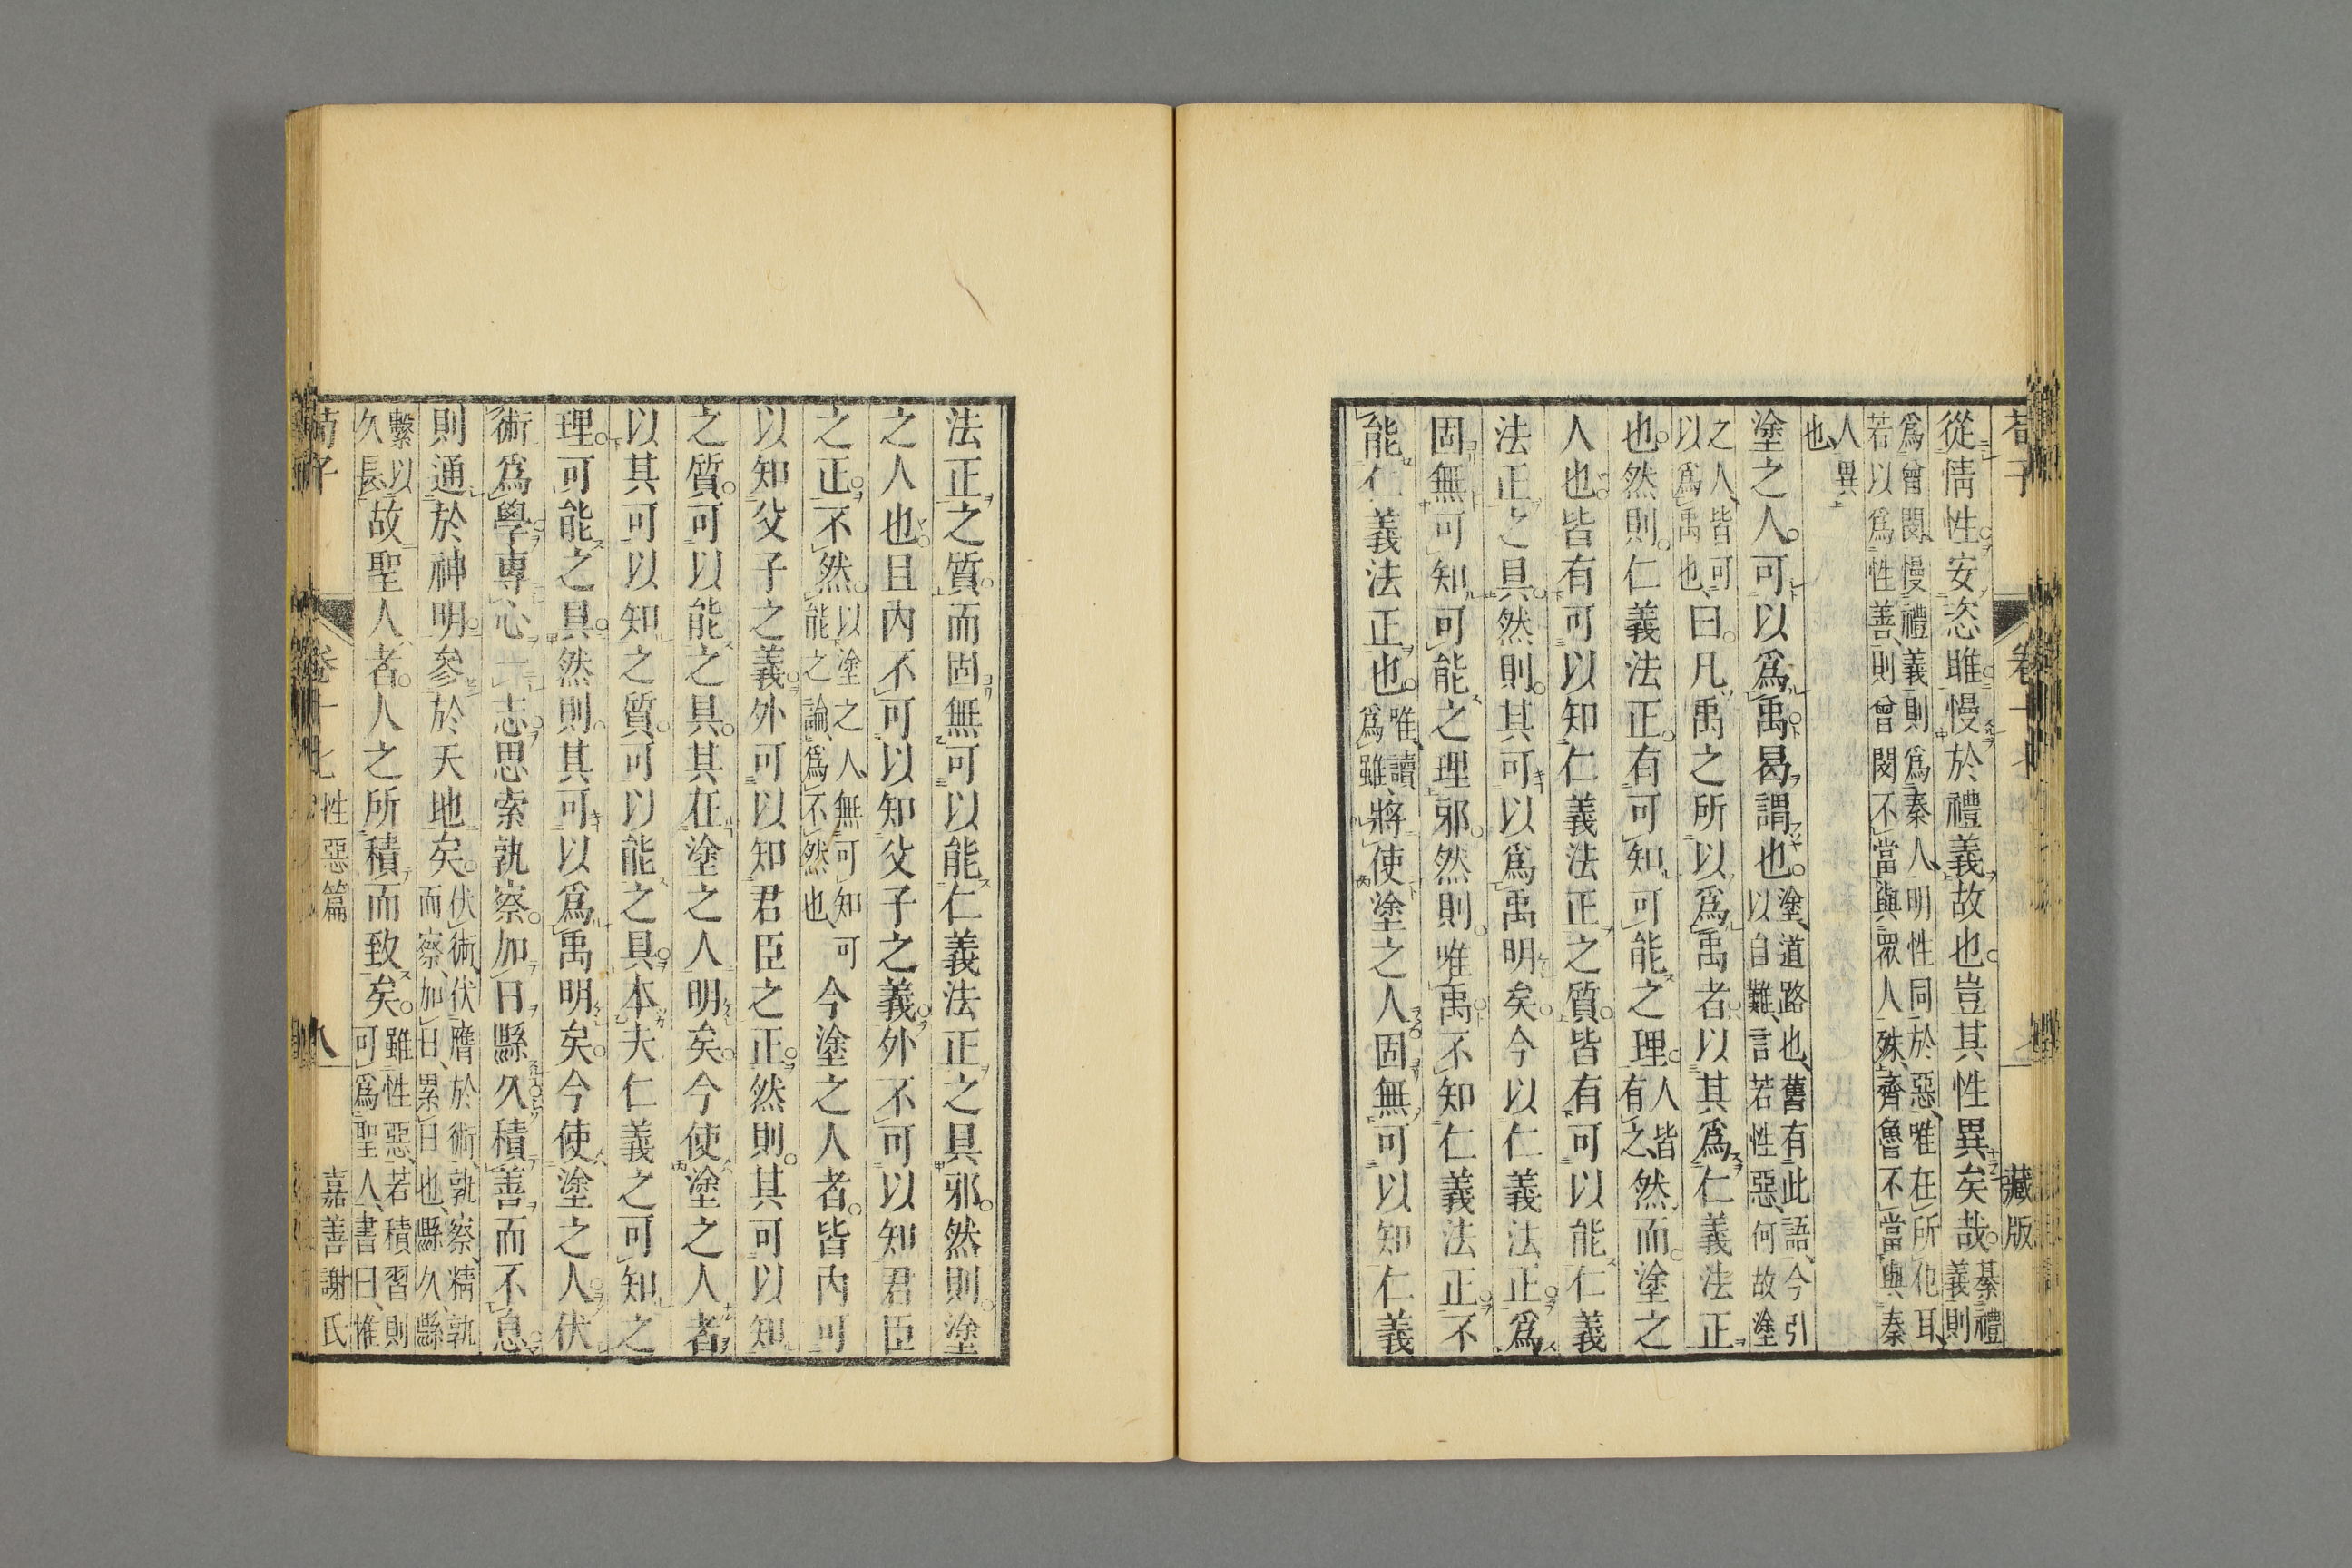 荀子 卷十七 藏版
從情性安恣睢慢於禮義故也豈其性異矣哉綦禮義則
爲曾閔慢禮義則爲秦人明性同於惡唯在所化耳
若以爲性善則曾閔不當與眾人殊齊魯不當與秦
人異
也
塗之人可以爲禹曷謂也塗道路也舊有此語今引以自難言若性惡何故塗
之人皆可以爲禹也曰凡禹之所以爲禹者以其爲仁義法正
也然則仁義法正有可知可能之理人皆有之然而塗之
人也皆有可以知仁義法正之質皆有可以能仁義
法正之具然則其可以爲禹明矣今以仁義法正爲
固無可知可能之理邪然則唯禹不知仁義法正不
能仁義法正也唯讀爲雖將使塗之人固無可以知仁義
法正之質而固無可以能仁義法正之具邪然則塗
之人也且內不可以知父子之義外不可以知君臣
之正不然以塗之人無可知可能之論爲不然也今塗之人者皆內可
以知父子之義外可以知君臣之正然則其可以知
之質可以能之具其在塗之人明矣今使塗之人者
以其可以知之質可以能之具本夫仁義之可知之
理可能之具然則其可以爲禹明矣今使塗之人伏
術爲學專心一志思索孰察加日縣久積善而不息
則通於神明參於天地矣伏術伏膺於術孰察精孰而察加日累日也縣久縣
繫以久長故聖人者人之所積而致矣雖性惡若積習則可爲聖人書曰惟
荀子 卷十七 性惡篇 八 嘉善謝氏